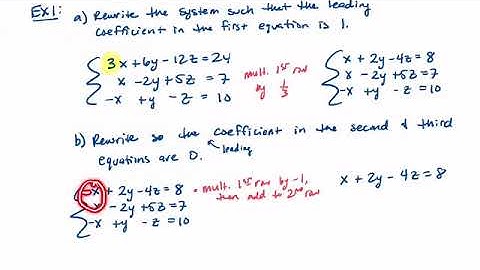 EX1: a) Rewrite the system such that the leading
coefficient in the first equation is 1.
3x + 6y - 12z = 24
x - 2y + 5z = 7
-x + y - z = 10
mult. 1st row
by 1/3
x + 2y - 4z = 8
x - 2y + 5z = 7
-x + y - z = 10
b) Rewrite so the coefficient in the second & third
leading
equations are 0.
x + 2y - 4z = 8
- 2y + 5z = 7
-x + y - z = 10
• mult. 1st row by -1,
then add to 2nd row
x + 2y - 4z = 8